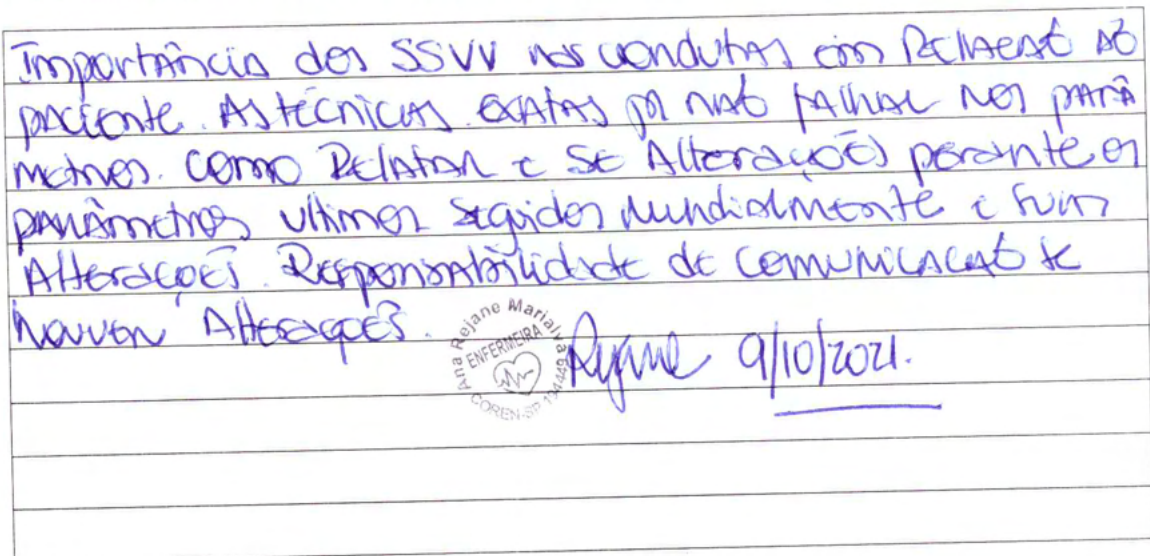 Importância dos SSVV nas condutas em Relação ao
paciente. As técnicas exatas p/ não falhar nos parâ
metros. Como Relatar e se Alterações perante os
parâmetros ultimos seguidos mundialmente e suas
Alterações. Responsabilidade de comunicação se
houver Alterações.
Ana Rejane Marialva
ENFERMEIRA
COREN-SP
Rejane 9/10/2021.